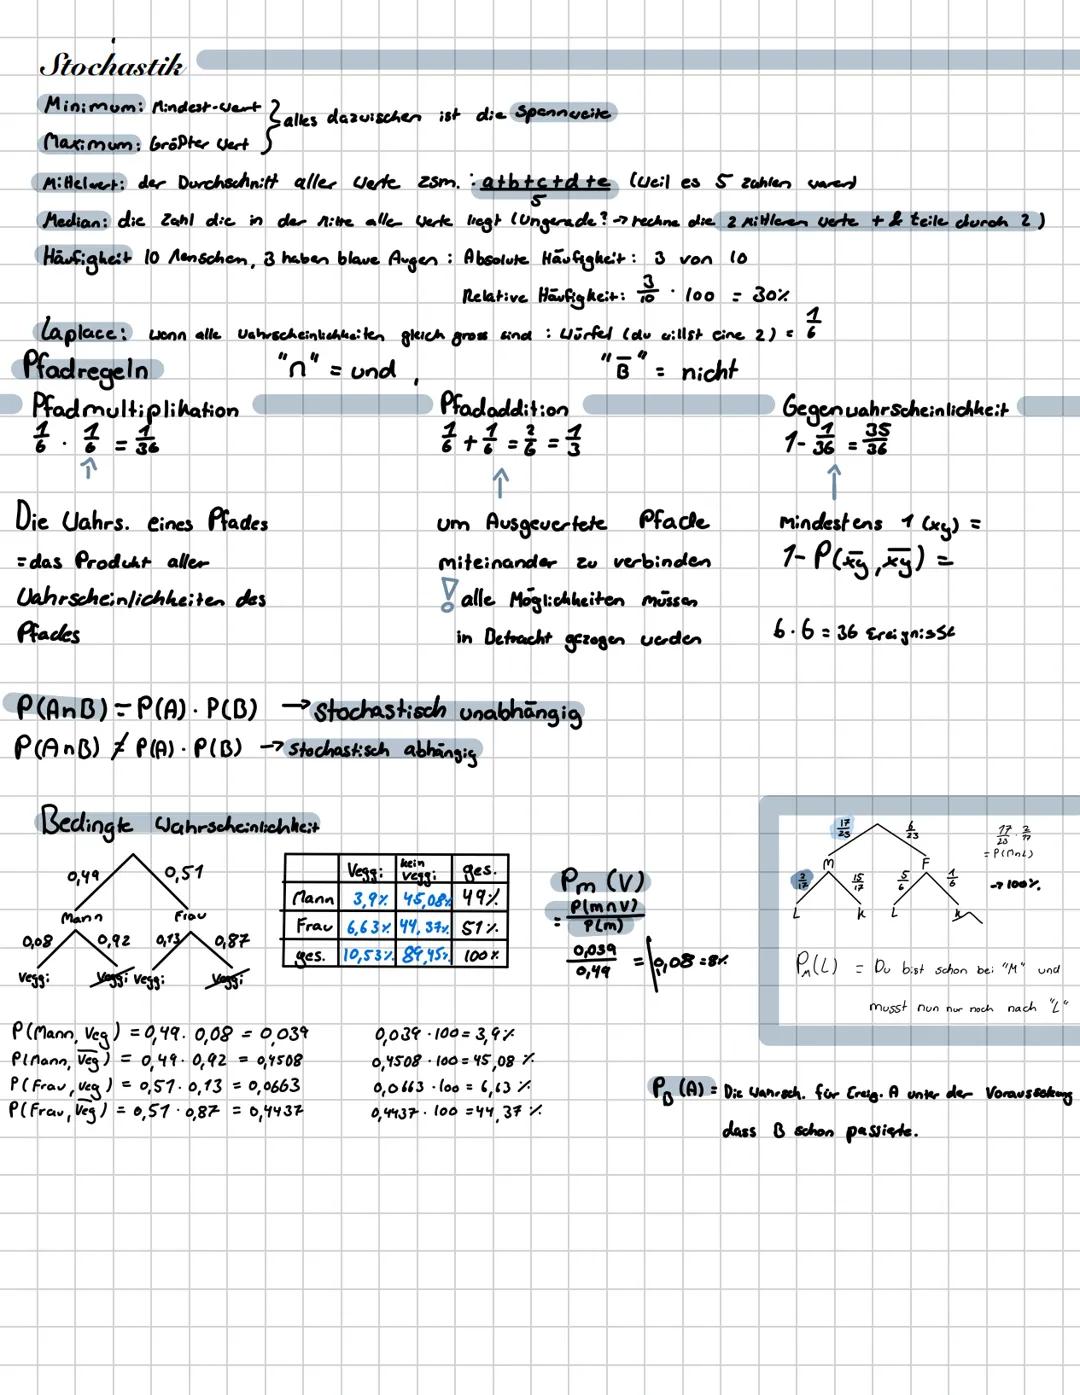 Stochastik
Minimum: Mindest-wert } alles dazwischen ist die Spannweite
Maximum: Größter Wert
Mittelwert: der Durchschnitt aller Werte zsm. : a+b+c+d+e (Weil es 5 zahlen waren)
5
Median: die Zahl die in der Mitte aller Werte liegt (Ungerade? → rechne die 2 Mittleren werte + & teile durch 2)
Häufigkeit 10 Menschen, 3 haben blaue Augen : Absolute Häufigkeit : 3 von 10
Relative Häufigkeit: 3/10 · 100 = 30%
Laplace: wenn alle Wahrscheinlichkeiten gleich gross sind : Würfel (du willst eine 2) = 1/6
Pfadregeln "∩" = und , "B̅" = nicht
Pfadmultiplikation Pfadaddition Gegenwahrscheinlichkeit
1/6 · 1/6 = 1/36 1/6 + 1/6 = 2/6 = 1/3 1 - 1/36 = 35/36
Die Wahrs. eines Pfades
=das Produkt aller
Wahrscheinlichkeiten des
Pfades
um Ausgewertete Pfade
miteinander zu verbinden
! alle Möglichkeiten müssen
in Betracht gezogen werden
Mindestens 1 (xy) =
1- P(x̅y̅, x̅y̅) =
6 · 6 = 36 Ereignisse
P(A∩B) = P(A) · P(B) → Stochastisch unabhängig
P(A∩B) ≠ P(A) · P(B) → Stochastisch abhängig
Bedingte Wahrscheinlichkeit
0,49 0,51
Mann Frau
0,08 0,92 0,13 0,87
Veggi Veggi Veggi Veggi
Veggi kein Veggi ges.
Mann 3,9% 45,08% 49%
Frau 6,63% 44,37% 51%
ges. 10,53% 89,45% 100%
Pm (V)
= P(m∩V)
P(m)
0,039
0,49
= 0,08 = 8%
17/23 6/23
M F
2/17 15/17 5/6 1/6
L K L K
17/23 · 2/17
= P(M∩L)
→ 100%
PM(L) = Du bist schon bei "M" und
musst nun nur noch nach "L"
P(Mann, Veg) = 0,49 · 0,08 = 0,039 0,039 · 100 = 3,9%
P(Mann, V̅e̅g̅) = 0,49 · 0,92 = 0,4508 0,4508 · 100 = 45,08 %
P(Frau, veg) = 0,51 · 0,13 = 0,0663 0,0663 · 100 = 6,63 %
P(Frau, V̅e̅g̅) = 0,51 · 0,87 = 0,4437 0,4437 · 100 = 44,37 %
PB (A) = Die Wahrsch. für Ereig. A unter der Voraussetzung
dass B schon passierte.